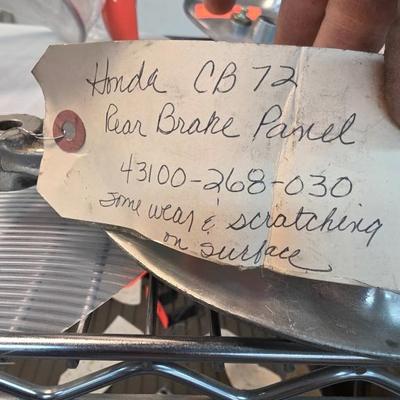 Honda CB72
Rear Brake Panel
43100-268-030
Some wear & scratching
on surface